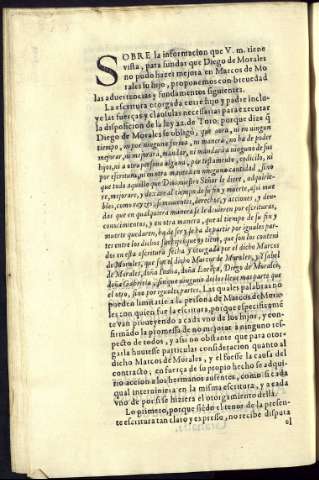 SOBRE la informacion que V. m. tiene
vista, para fundar que Diego de Morales
no pudo hazer mejora en Marcos de Mo
rales su hijo, proponemos con breuedad
las aduertencias y fundamentos siguientes.
La escritura otorgada entre hijo y padre inclu-
ye las fuerças y clausulas necessarias para executar
la disposicion de la ley 22. de Toro: porque dize q̃
Diego de Morales se obligò, que aora, ni en ningun
tiempo, ni por ninguna forma, ni manera, no ha de poder
mejorar, ni mejorarà, mandar, ni mandarà a ninguno de sus
hijos, ni a otra persona alguna, por testamento, codicilo, ni
por escritura, ni en otra manera en ninguna cantidad, sino
que todo aquello que Dios nuestro Señor le diere, adquirie-
re, mejorare, y dexare al tiempo de su fin y muerte, assi mue
bles, como rayzes, semouientes, derechos, y acciones, y deu-
das que en qualquiera manera se le deuieren por escrituras,
conocimientos, y en otra manera, que al tiempo de su fin y
muerte quedaren, ha de ser, y se ha de partir por iguales par-
tes entre los dichos sus hijos que tiene, que son los conteni
dos en esta escritura fecha y otorgada por el dicho Marcos
de Morales, que son el dicho Marcos de Morales, y Isabel
de Morales, doña Iuana, doña Lorença, Diego de Morales,
doña Gabriela, sin que ninguno dellos lleue mas parte que
el otro, sino por iguales partes. Las quales palabras no
pueden limitarse a la persona de Marcos de Mora-
les, con quien fue la escritura, porque especificamẽ
te van proueyendo a cada vno de los hijos, y con-
firmãdo la promessa de no mejorar a ninguno res-
pecto de todos, y assi no obstante que para otor-
garla huuiesse particular consideracion quanto al
dicho Marcos de Morales, y el fuesse la causa del
contracto, en fuerça de su propio hecho se adqui-
rio accion a los hermanos ausentes, como si cada
qual interuiniera en la misma escritura, y a cada
vno de por si se hiziera el otorgamiento della.
Lo primero, porque siẽdo el tenor de la presen-
te escritura tan claro y expresso, no recibe disputa